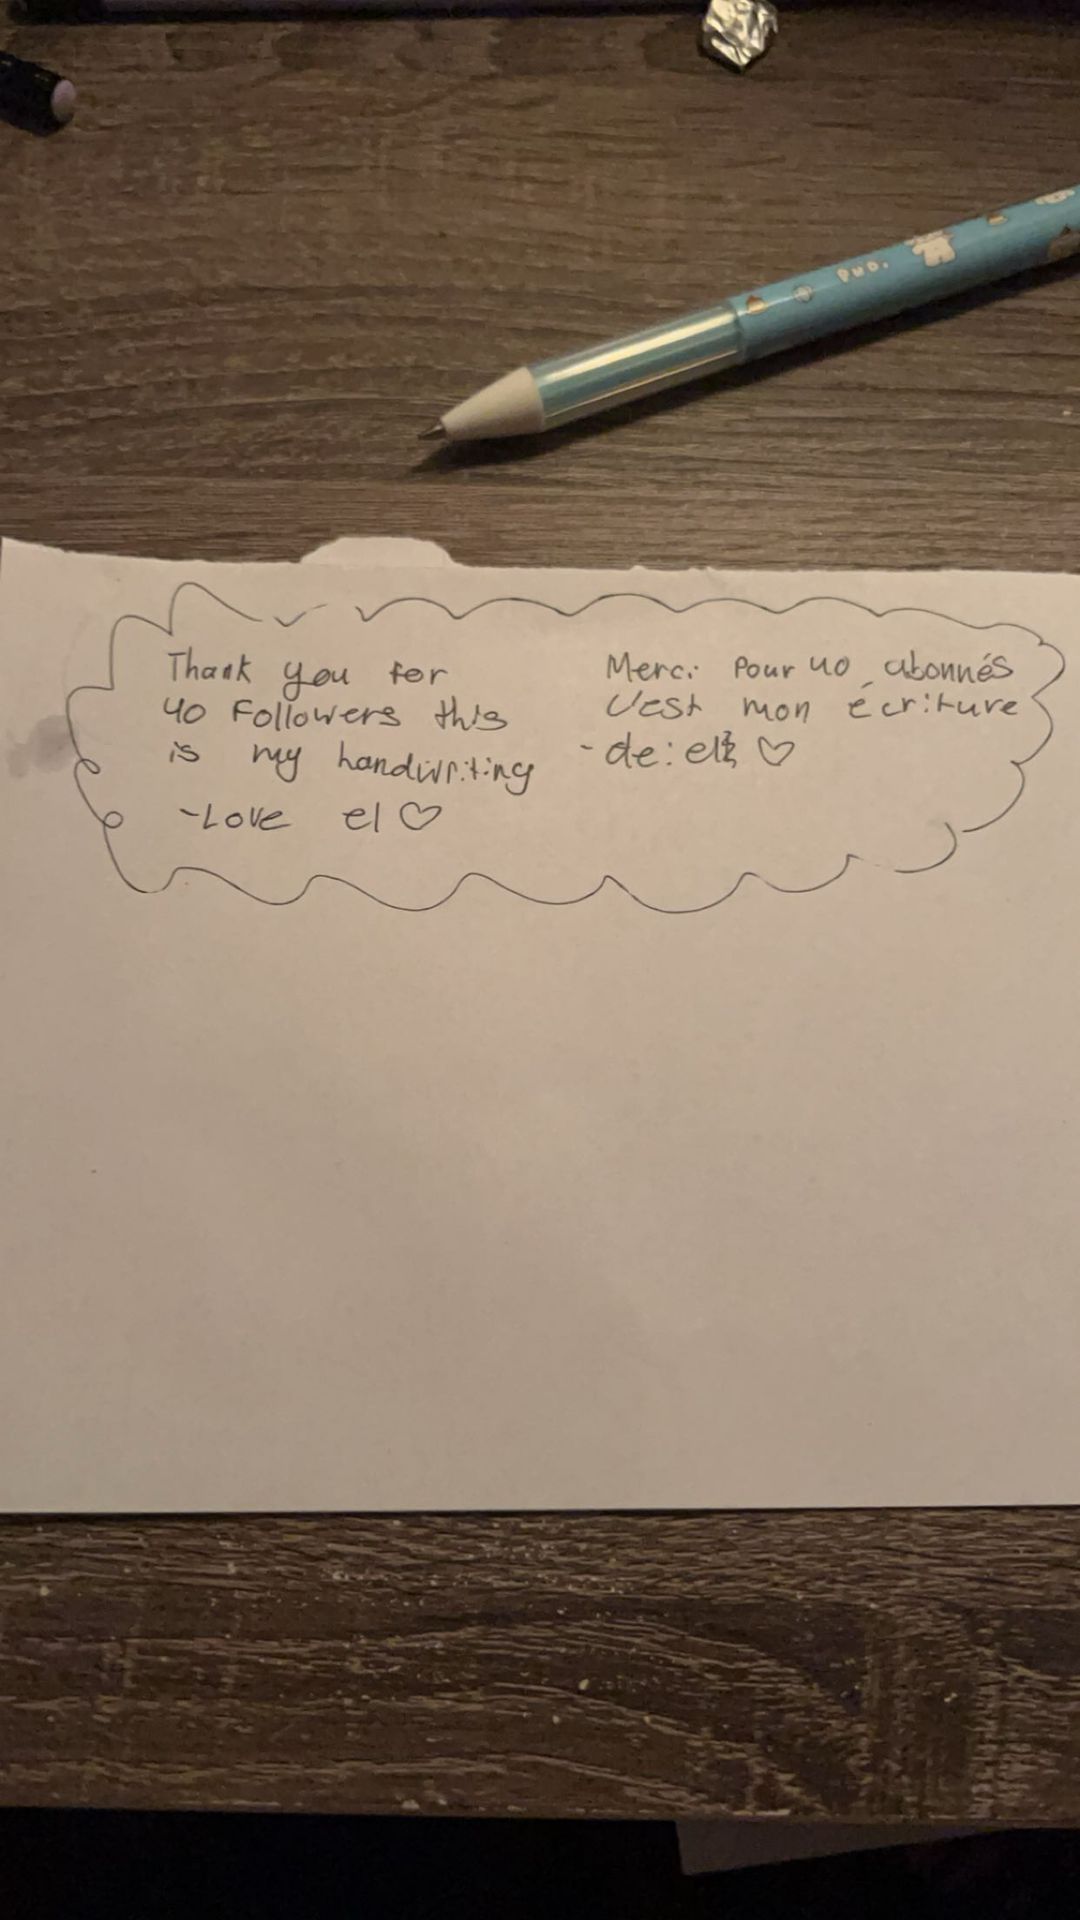 Thank you for
40 Followers this
is my handwriting
-Love el ♡
Merci pour 40 abonnés
C'est mon écriture
-de: el ♡